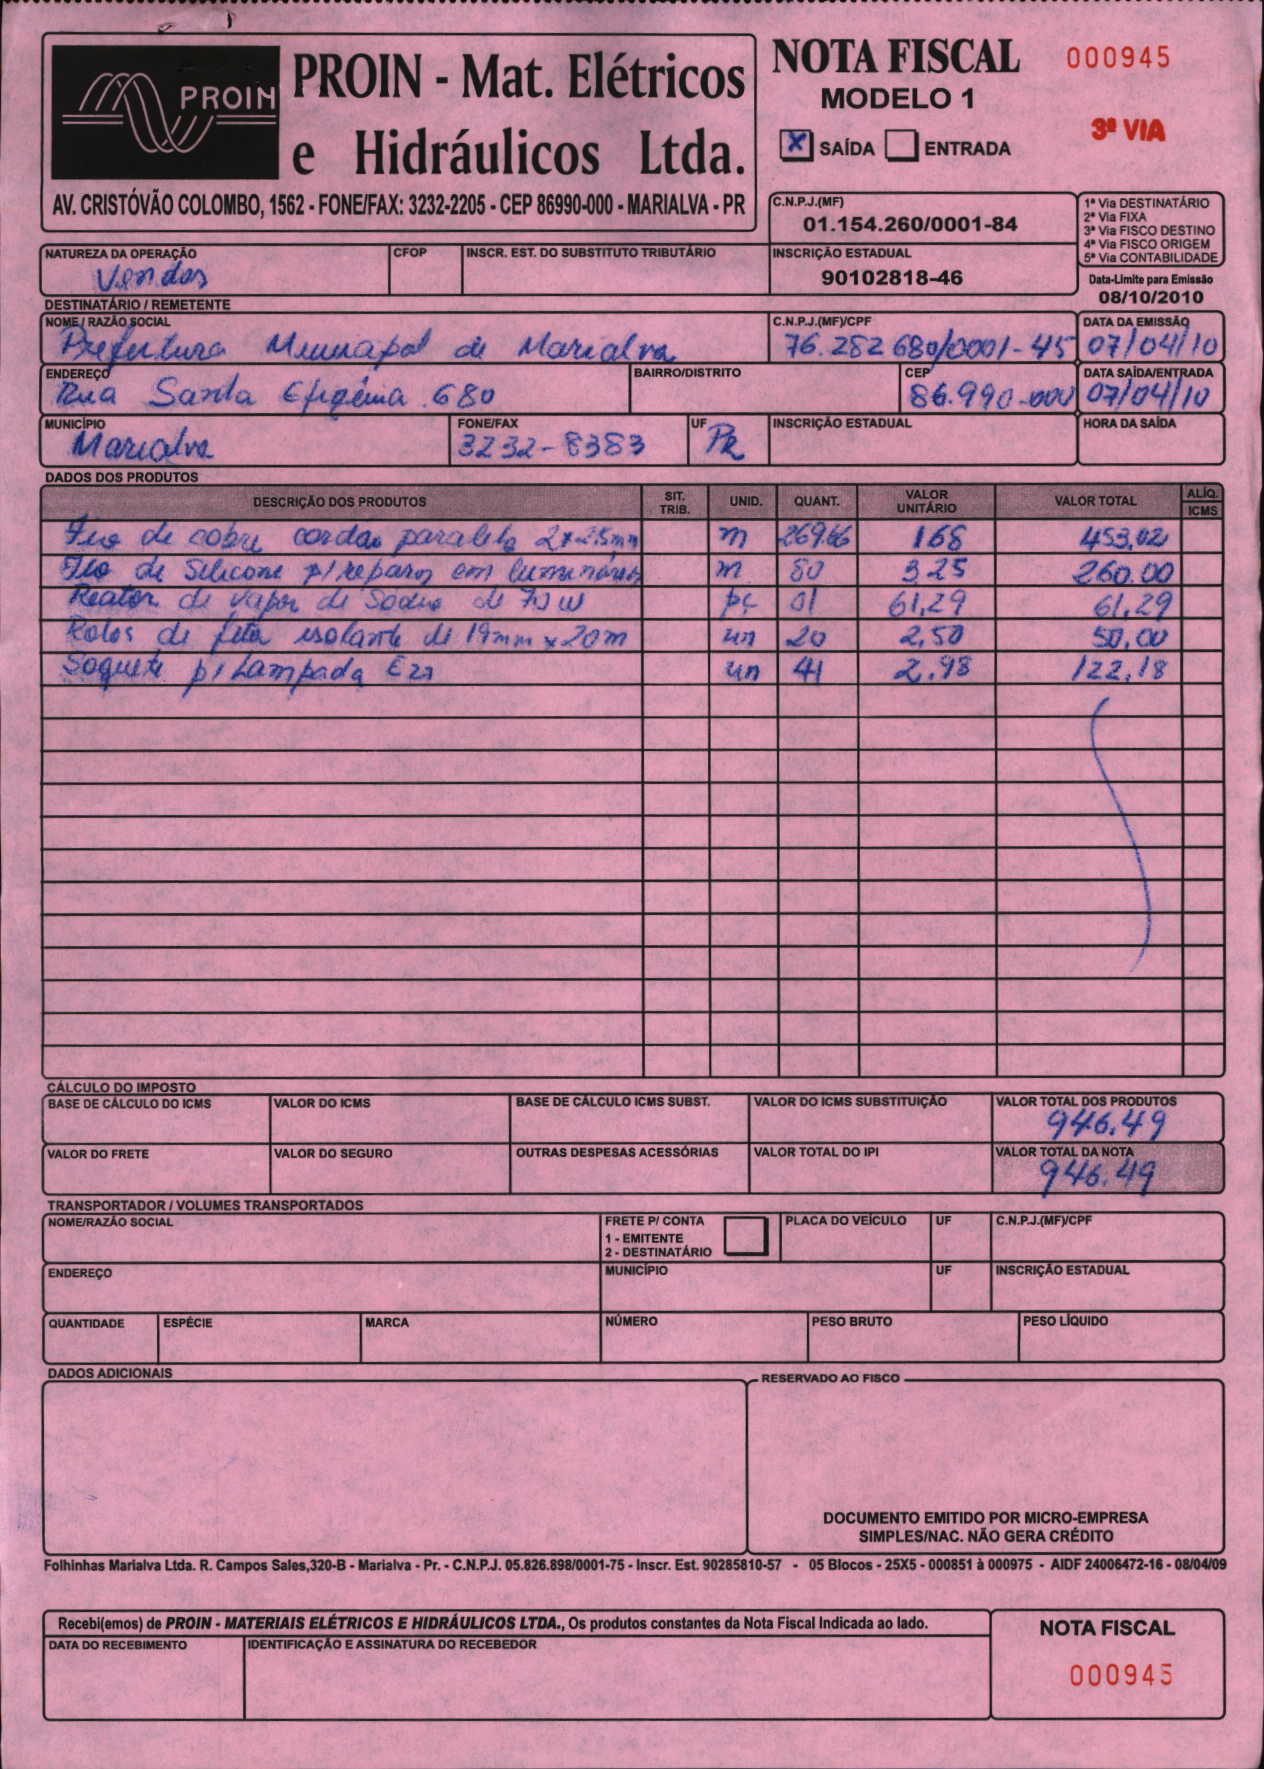 PROIN
PROIN - Mat. Elétricos
e Hidráulicos Ltda.
AV. CRISTÓVÃO COLOMBO, 1562 - FONE/FAX: 3232-2205 - CEP 86990-000 - MARIALVA - PR
NOTA FISCAL 000945
MODELO 1
3ª VIA
X SAÍDA ENTRADA
C.N.P.J.(MF)
01.154.260/0001-84
INSCRIÇÃO ESTADUAL
90102818-46
1ª Via DESTINATÁRIO
2ª Via FIXA
3ª Via FISCO DESTINO
4ª Via FISCO ORIGEM
5ª Via CONTABILIDADE
Data-Limite para Emissão
08/10/2010
NATUREZA DA OPERAÇÃO CFOP INSCR. EST. DO SUBSTITUTO TRIBUTÁRIO
Vendas
DESTINATÁRIO / REMETENTE
NOME / RAZÃO SOCIAL C.N.P.J.(MF)/CPF DATA DA EMISSÃO
Prefeitura Municipal de Marialva 76.282 680/0001-45 07/04/10
ENDEREÇO BAIRRO/DISTRITO CEP DATA SAÍDA/ENTRADA
Rua Santa Efigênia 680 86.990-000 07/04/10
MUNICÍPIO FONE/FAX UF INSCRIÇÃO ESTADUAL HORA DA SAÍDA
Marialva 3232-8383 PR
DADOS DOS PRODUTOS
DESCRIÇÃO DOS PRODUTOS SIT. TRIB. UNID. QUANT. VALOR UNITÁRIO VALOR TOTAL ALÍQ. ICMS
Fio de cobre cordão paralelo 2x2,5mm m 269,66 168 453,02
Fio de Silicone p/reparos em luminárias m 80 3,25 260,00
Reator de vapor de Sodio de 70 W pç 01 61,29 61,29
Rolos de fita isolante de 19mm x 20m un 20 2,50 50,00
Soquete p/ Lampada E27 un 41 2,98 122,18
CÁLCULO DO IMPOSTO
BASE DE CÁLCULO DO ICMS VALOR DO ICMS BASE DE CÁLCULO ICMS SUBST. VALOR DO ICMS SUBSTITUIÇÃO VALOR TOTAL DOS PRODUTOS
946,49
VALOR DO FRETE VALOR DO SEGURO OUTRAS DESPESAS ACESSÓRIAS VALOR TOTAL DO IPI VALOR TOTAL DA NOTA
946,49
TRANSPORTADOR / VOLUMES TRANSPORTADOS
NOME/RAZÃO SOCIAL FRETE P/ CONTA PLACA DO VEÍCULO UF C.N.P.J.(MF)/CPF
1 - EMITENTE
2 - DESTINATÁRIO
ENDEREÇO MUNICÍPIO UF INSCRIÇÃO ESTADUAL
QUANTIDADE ESPÉCIE MARCA NÚMERO PESO BRUTO PESO LÍQUIDO
DADOS ADICIONAIS
RESERVADO AO FISCO
DOCUMENTO EMITIDO POR MICRO-EMPRESA
SIMPLES/NAC. NÃO GERA CRÉDITO
Folhinhas Marialva Ltda. R. Campos Sales,320-B - Marialva - Pr. - C.N.P.J. 05.826.898/0001-75 - Inscr. Est. 90285810-57 - 05 Blocos - 25X5 - 000851 à 000975 - AIDF 24006472-16 - 08/04/09
Recebi(emos) de PROIN - MATERIAIS ELÉTRICOS E HIDRÁULICOS LTDA., Os produtos constantes da Nota Fiscal Indicada ao lado.
DATA DO RECEBIMENTO IDENTIFICAÇÃO E ASSINATURA DO RECEBEDOR
NOTA FISCAL
000945